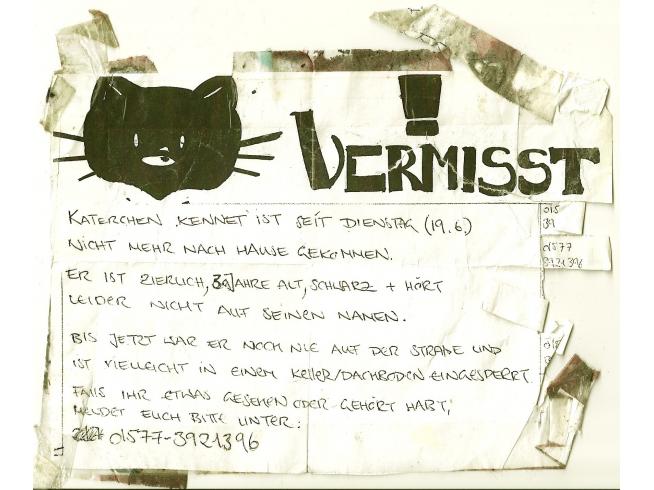 ! VERMISST
KATERCHEN 'KENNET' IST SEIT DIENSTAG (19.6)
NICHT MEHR NACH HAUSE GEKOMMEN.
ER IST ZIERLICH, 3 JAHRE ALT, SCHWARZ + HÖRT
LEIDER NICHT AUF SEINEN NAMEN.
BIS JETZT WAR ER NOCH NIE AUF DER STRAßE UND
IST VIELLEICHT IN EINEM KELLER/DACHBODEN EINGESPERRT.
FALLS IHR ETWAS GESEHEN ODER GEHÖRT HABT,
MELDET EUCH BITTE UNTER:
01577-3921396
015
39
01577
3921396